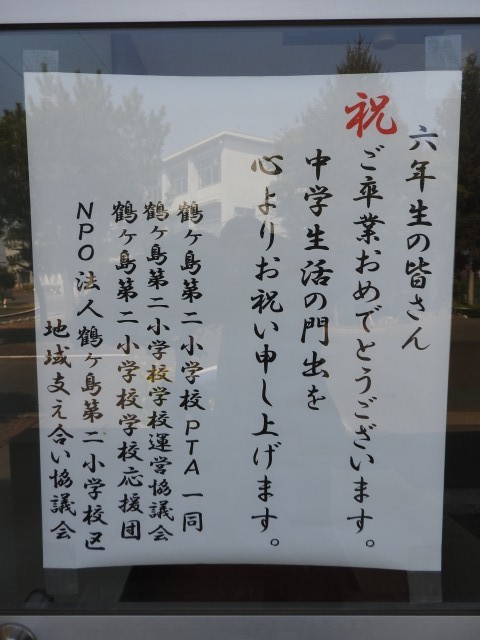 六年生の皆さん
祝
ご卒業おめでとうございます。
中学生活の門出を
心よりお祝い申し上げます。
鶴ヶ島第二小学校PTA一同
鶴ヶ島第二小学校学校運営協議会
鶴ヶ島第二小学校学校応援団
NPO法人鶴ヶ島第二小学校区
地域支え合い協議会